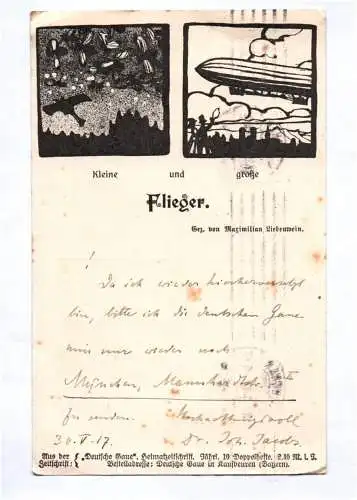 Kleine und große
Flieger.
Gez. von Maximilian Liebenwein.
!
Da ich wieder hierher versetzt
bin, bitte ich die deutschen Gaue
mir nur wieder nach
München,
zu senden. Hochachtungsvoll
30.V.17. Dr. Joh. Jacobs
Aus der Zeitschrift: { „Deutsche Gaue“, Heimatzeitschrift. Jährl. 10 Doppelhefte. 2.40 M. i. J.
Bestelladresse: Deutsche Gaue in Kaufbeuren (Bayern).